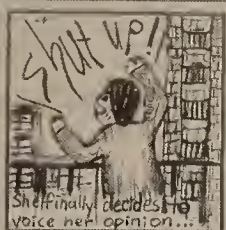 Shut up!
She finally decides to
voice her opinion...